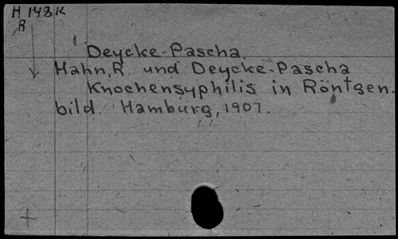 H 148 K
R
Deycke-Pascha.
Hahn, R. und Deycke-Pascha
Knochensyphilis in Röntgen-
bild. Hamburg, 1907.